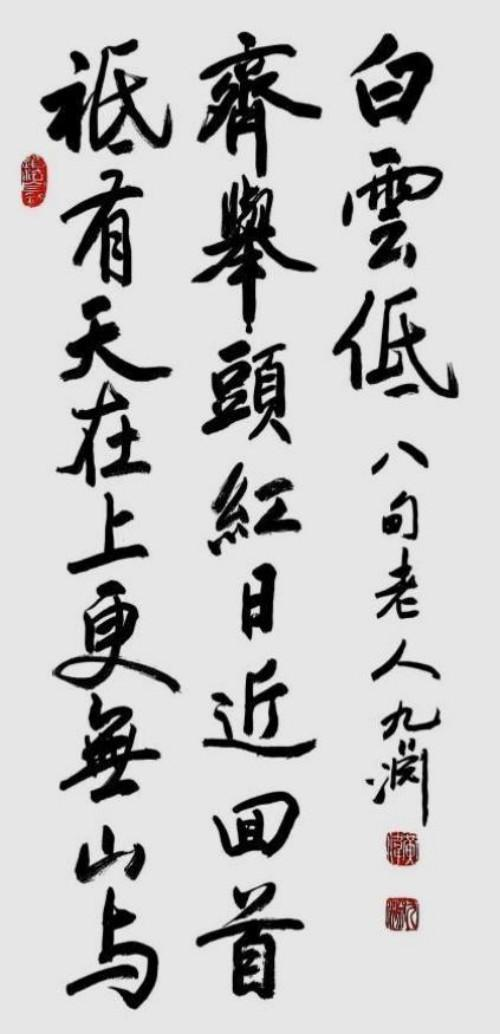 祗有天在上更無山与
齊舉頭紅日近回首
白雲低
八旬老人九渊